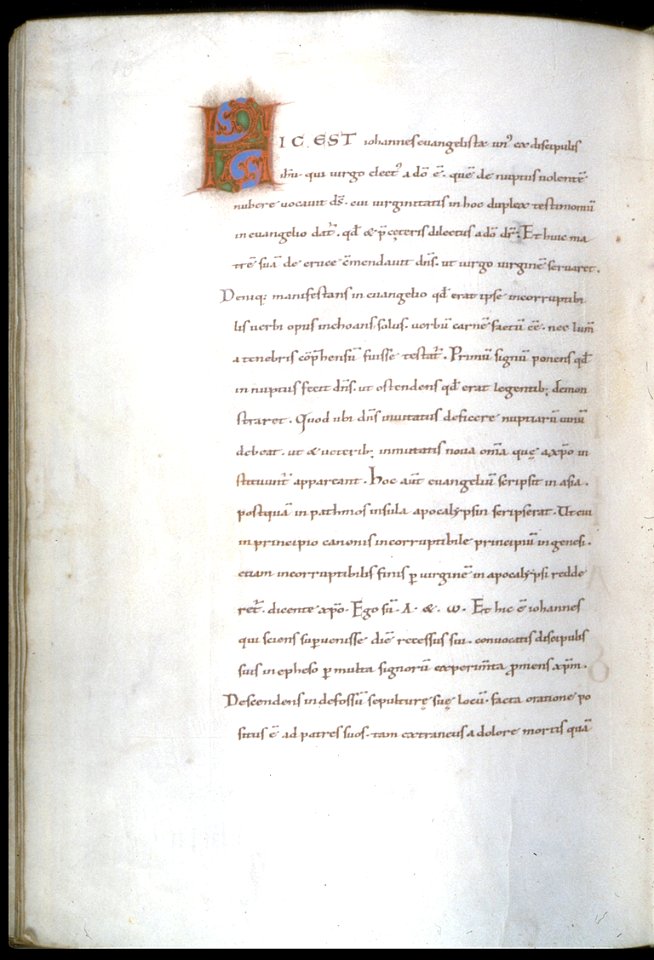 HIC EST iohannes euangelista. un' ex discipulis
dñi. qui uirgo elect' a dõ ẽ. quẽ de nuptiis uolentẽ
nubere uocauit dš. cui uirginitatis in hoc duplex testimoniũ
in euangelio dat̃. qđ & p̃ ceteris dilectus a dõ dr̃. Et huic ma
trẽ suã de cruce cõmendauit dñs. ut uirgo uirginẽ seruaret.
Deniq; manifestans in euangelio qđ erat ipse incorruptibi
lis uerbi opus inchoans. solus. uerbũ carnẽ factũ eẽ. nec lum̃
a tenebris cõp̃hensũ fuisse testat̃. Primũ signũ ponens qđ
in nuptiis fecit dñs. ut ostendens qđ erat legentib; demon
straret. Quod ubi dñs inuitatus deficere nuptiarũ uinũ
debeat. ut & ueterib; inmutatis noua om̃a quę a xp̃o in
stituunt̃ appareant. Hoc aut̃ euangeliũ scripsit in asia.
postquã in pathmos insula apocalypsin scripserat. Ut cui
in principio canonis incorruptibile principiũ in genesi.
etiam incorruptibilis finis p uirginẽ in apocalypsi redde
ret̃. dicente xp̃o. Ego sũ. A. &. ω. Et hic ẽ iohannes
qui sciens sup̲uenisse diẽ recessus sui. conuocatis discipulis
suis in epheso p multa signorũ experim̃ta p̲mens xp̃m.
Descendens in defossũ sepulturę suę locũ. facta oratione po
situs ẽ ad patres suos. tam extraneus a dolore mortis quã